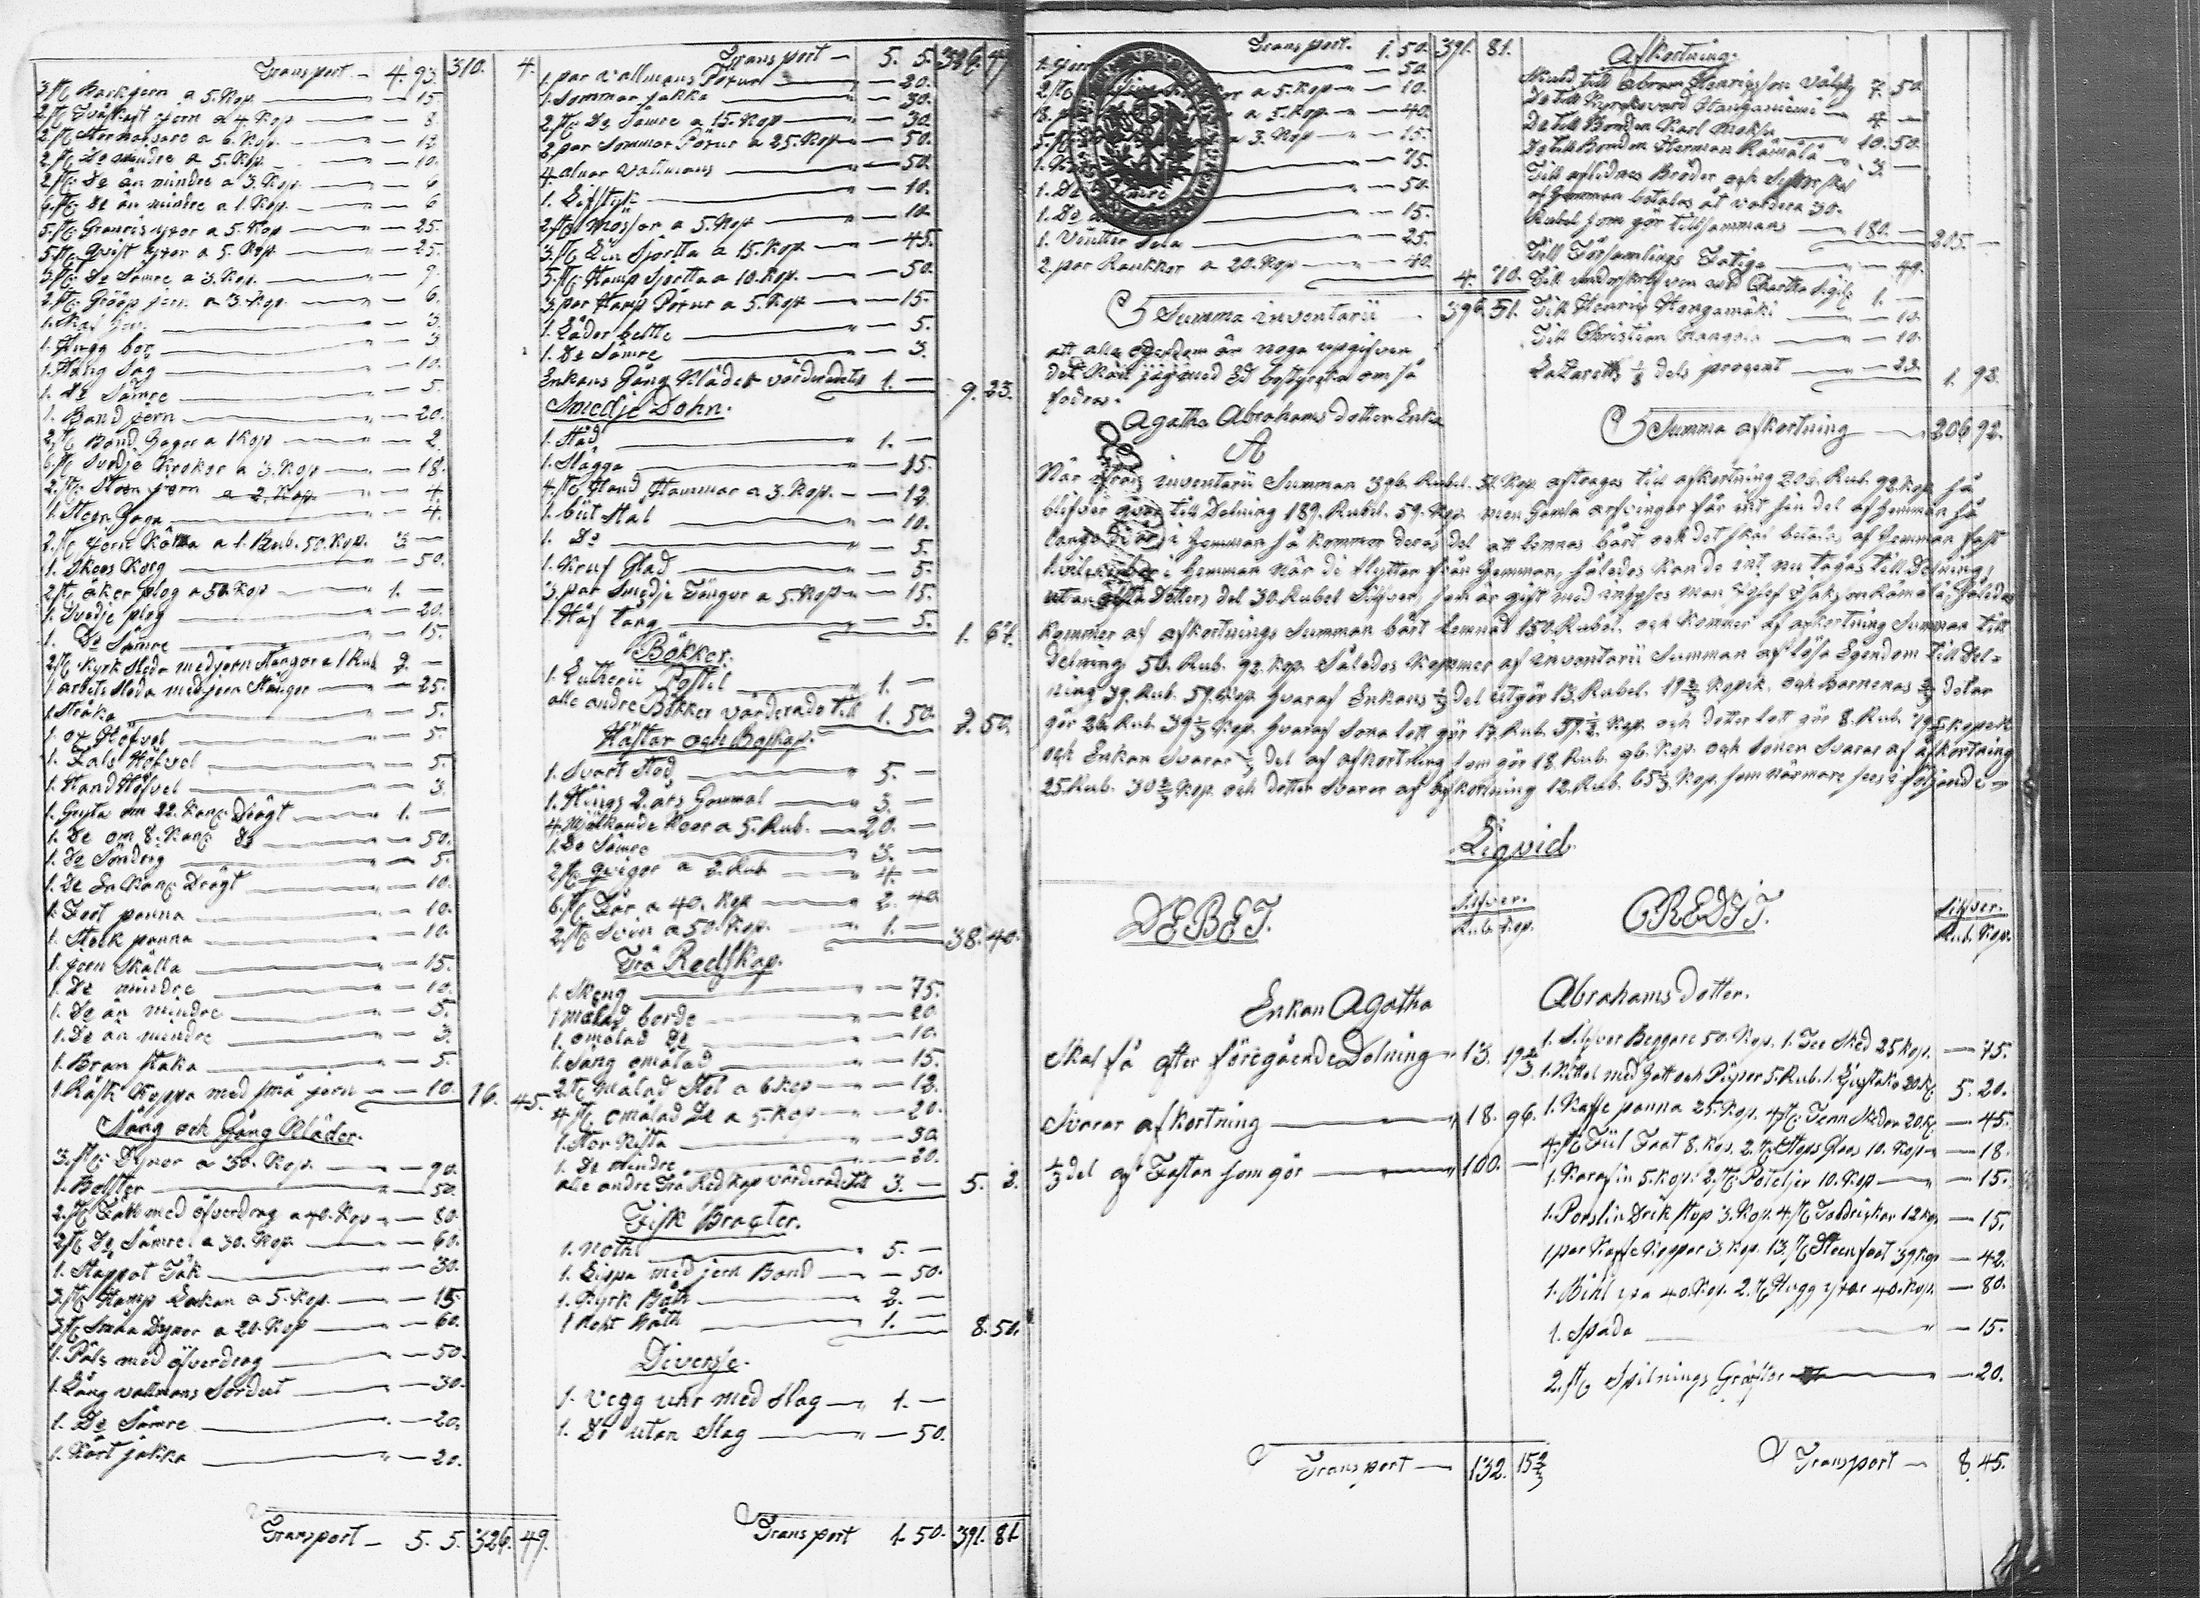 Transport - 4. 93. 310. 4.
3. st. Backjern a 5. Kop - 15.
2. st. jern a 4. Kop - 8.
2. st. a 6. Kop - 12.
2. st. De mindre a 5. Kop - 10.
2. st. De än mindre a 3. Kop - 6.
6. st. De än mindre a 1. Kop - 6
5. st. Granris yxor a 5. Kop - 25.
5. st. qvist yxor a 5. Kop - 25.
3. st. De Sämre a 3. Kop. - 9.
2. st. jern a 3. Kop - 6.
1. - 3.
1. Hugg bor - 3
1. Häng Sag - 10.
1. De Sämre - 5.
1. Band jern - 20.
2. st. Band a 1 Kop - 2.
6. st. Svedje Krokar a 3. Kop - 18.
2. st. Steen jern a 2. Kop - 4.
1. Steen - 4.
2. st. jern a 1. Rub. 50. Kop. 3 -
1. Skoos Korg - 50.
2. st. åker plog a 50 Kop - 1. -
1. Svedje plog - 20.
1. De Sämre - 15.
2. st. Kyrk Släda med jern Stängor a 1 Rub. 2. -
1. arbets Släda med jern Stänger - 25.
1. Stråka - 5.
1. Höfvel - 5.
1. Fals Höfvel - 5.
1. Hand Höfvel - 3.
1. Gryta om 22. Kan: Drägt - 1. -
1. De om 8. Kan: De - 50.
1. De Söndrig - 5.
1. De En Kan: Drägt - 10.
1. Foot panna - 10.
1. Steek panna - 10.
1. jern Skålla - 15.
1. De mindre - 10.
1. De än mindre - 5.
1. De än mindre - 3.
1. Bran staka - 5.
1. Koppa med små jern - 10. 16. 45.
Säng och Gång Kläder.
3. st. Dynor a 30. Kop. - 90.
1. Bolster - 50.
2. st. Fäll med öfverdrag a 40. Kop - 80.
2. st. De Sämre a 30. Kop - 60.
1. Stoppat Täk - 30.
3. st. Hamp Lakan a 5. Kop. - 15
3. st. Smaa Dynor a 20. Kop - 60.
1. Päls med öfverdrag - 50.
1. Lång vallmans Sordut - 30.
1. De Sämre - 20.
1. Kort jakka - 20.
Transport - 5. 5. 326. 49.
Transport - 5. 5. 326. 49
1. par Vallmans Böxur - 20.
1. Sommar jakka - 30.
2. st. De Sämre a 15. Kop - 30.
2. par Sommar Böxur a 25. Kop - 50.
4. alnar Vallmans - 50.
1. Lifstyk - 10.
2. st. Mössor a 5. Kop - 10
3. st. Lin Sjortta a 15. Kop. - 45.
5. st. Hamp Sjortta a 10. Kop. - 50.
3. par Hamp Böxur a 5. Kop - 15.
1. Läder beltte - 5.
1. De Sämre - 3.
Enkans Gång Kläder värderade 1. - 9. 23.
Smedje Dohn.
1. Städ - 1. -
1. Slägga - 15.
4. st. Hand Hammar a 3. Kop. - 12
1. Stål - 10.
1. De - 5.
1. Städ - 5.
3. par Smedje Tänger a 5. Kop - 15.
1. Håf tång - 5. 1. 67.
Bökker.
1. Lutherii Postil - 1. -
alle andre Bökker värderade till 1. 50. 2. 50.
Hästar och Boskap.
1. Svart Stod - 5. -
1. Hings 2. års Gammal - 3. -
4. Mjölkande Koor a 5. Rub. - 20. -
1. De Sämre - 3. -
2. st. qvigor a 2. Rub - 4. -
6. st. Får a 40. Kop - 2. 40.
2. st. Svin a 50. Kop. - 1. - 38. 40.
Trä Redskap.
1. Skeng - 75.
1 målad borde - 20
1. omålad De - 10.
1. Säng omålad - 15.
2. st. målad Stol a 6 Kop - 12.
4. st. omålad De a 5. Kop - 20.
1. Stor Kista - 30.
1. De mindre - 20.
alle andre Trä Redskap värderade till 3. - 5. 2.
Fisk Bragter.
1. Noth - 5. -
1. Lispa med jern Band - 50.
1. Kyrk Båth - 2. -
1 Noht Båth - 1. - 8. 50.
Diversje.
1. Vegg uhr med Slag - 1. -
1. De utan Slag - 50.
Transport 1. 50. 391. 81
Transport. 1. 50. 391. 81.
1. - 50.
2. st. a 5. Kop - 10.
8. a 5. Kop - 40.
5. a 3. Kop - 15.
1. - 75.
1. De - 50.
1. De - 15.
1. Vintter Sela - 25.
2. par Rankkor a 20. Kop - 40. 4. 70.
Summa inventarii 396. 51.
att alla egendom är noga upgifven
det Kan jag med Ed bestyrcka om så
fodras.
Agatha Abrahams dotter Enka
A
Afkortning.
Skuld till Abram Henrigsson 7. 50.
De till Kyrckovärd 4 -
De till Bonden Karl 10. 50.
De till Bonden Herman Rämälä 3. -
Till aflidnes Bröder och
af Hemman betalas åt vardera 30.
Rubel som gör tillsammans - 180. - 205. -
Till Församlings Fatiga - 49.
Till underskrifven med Chartta Sigil: 1. -
Till Henric Hongamäki - 10.
Till Christian - 10.
Lazaretts 1/8 dels procent - 23. 1. 92.
Summa afkortning 206 92.
När ifrån inventarii Summan 396. Rubel. 51. Kop. aftrages till afkortning 206. Rub. 92. Kop. så
blifver qvar till Delning 189. Rubel. 59. Kop. men Gamla arfvingar får sin del af Hemman så
länge i Hemman så kommer deras del att lemnas bårt och det skal betalas af Hemman fast
i Hemman när de flytter från Hemman, således kan de int nu tagas till Delning,
utan dotters del 30. Rubel Silfver, som är gift med Rämälä, således
kommer af afkortnings Summan bårt lemnad 150. Rubel. och kommer af afkortning Summan till
delning 56. Rub. 92. Kop. Således kommer af inventarii Summan af lösa Egendom till Del=
ning 39. Rub. 59. Kop. hvaraf Enkans 1/3 del utgör 13. Rubel. 19 2/3 Kopek. och Barnenas 2/3 delar
gör 26. Rub. 39 1/3 Kop. hvaraf Sona lott gör 17. Rub. 59 1/2 Kop. och dotter lott gör 8. Rub. 79 Kopek
och Enkan Svarar 1/3 del af afkortning som gör 18. Rub. 96. Kop. och sonen Svarar af afkortning
25. Rub. 30 2/3 Kop. och dotter Svarar af afkortning 12. Rub. 65 1/3 Kop. som närmare sees i följande -
Liqvid.
DEBET. Silfver. Rub. Kop. CREDIT. Silfver. Rub. Kop.
Enkan Agatha Abrahams dotter.
Skal få efter föregående Delning 13. 19 2/3
Svarar afkortning 18. 96.
1/3 del af Fastan som gör 100. -
Transport - 132. 15 2/3
1. Silfver Beggare 50. Kop. 1. Tee Sked 25 Kop. - 75.
1. Kittel med Gott och Pipper 5. Rub. 1. Ljustake 20. K. 5. 20.
1. Kaffe panna 25. Kop. 4. st. Tenn Skedar 20. K. - 45.
4. st. Fiil Faat 8. Kop. 2. st. Stops Glaas 10. Kop - 18.
1. Karafin 5. Kop. 2. st. Poteljer 10. Kop - 15.
1. Porslin Drik stop 3. Kop. 4. st. Taldrickar 12 Kop - 15.
1 par Kaffe Kopper 3 Kop. 13. st. Steen faat 39 Kop - 42.
1. yxa 40. Kop. 2. st. Hugg yxor 40. Kop. - 80.
1. Spada - 15.
2. st. Spilnings Gräftor - 20.
Transport - 8. 45.